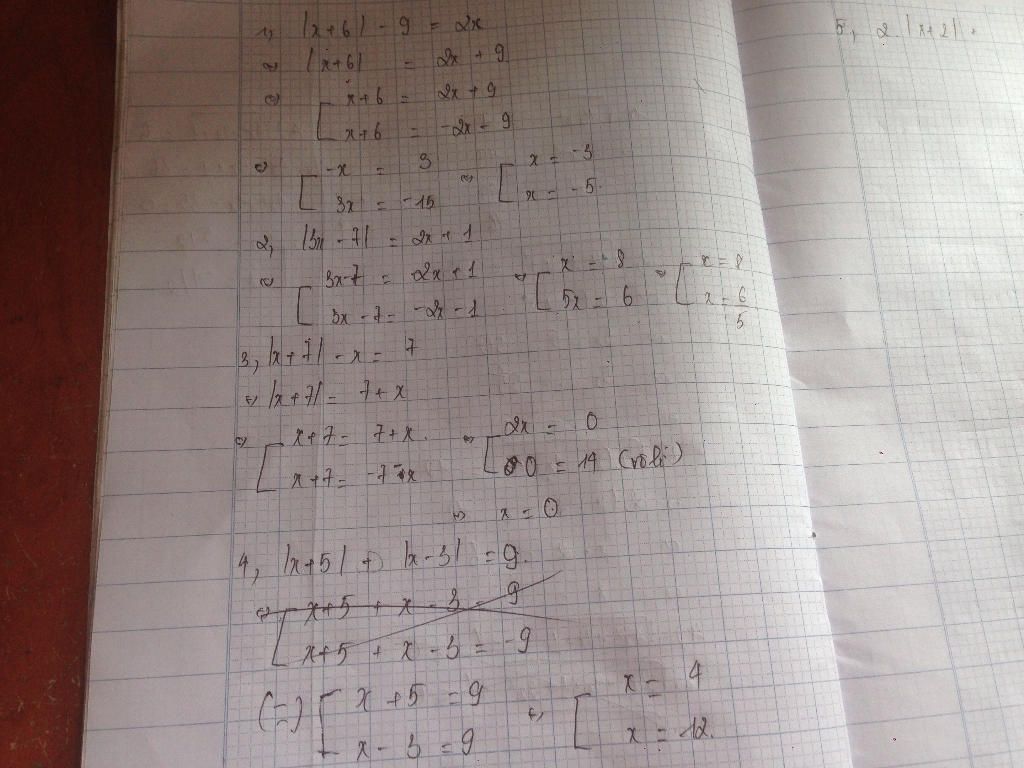 1, |x+6| - 9 = 2x
⇔ |x+6| = 2x + 9
⇔ [ x+6 = 2x+9
x+6 = -2x-9
⇔ [ -x = 3 ⇔ [ x = -3
3x = -15 x = -5
2, |3x-7| = 2x+1
⇔ [ 3x-7 = 2x+1 ⇔ [ x = 8 ⇔ [ x = 8
3x-7 = -2x-1 5x = 6 x = 6/5
3, |x+7| - x = 7
⇔ |x+7| = 7+x
⇔ [ x+7 = 7+x ⇔ [ 2x = 0
x+7 = -7-x 0 = 14 (vôlí)
⇔ x = 0
4, |x+5| + |x-3| = 9
⇔ [ x+5 + x-3 = 9
x+5 + x-3 = -9
(=) [ x+5 = 9 ⇔ [ x = 4
x-3 = 9 x = 12
5, 2 |x+2| +